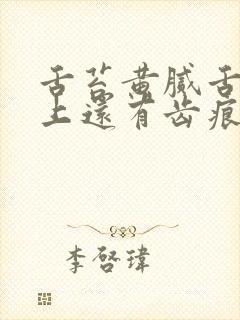 舌苔黄腻舌
上还有齿痕
李啓瑋